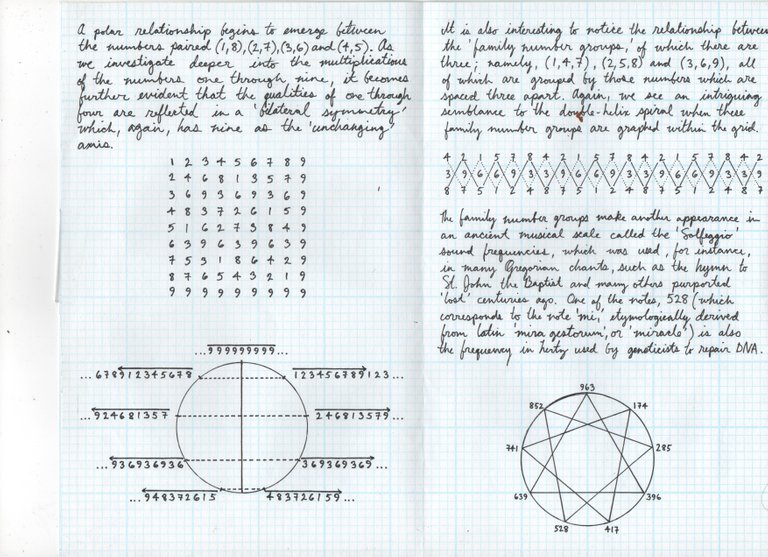 A polar relationship begins to emerge between
the numbers paired (1,8), (2,7), (3,6) and (4,5). As
we investigate deeper into the multiplications
of the numbers one through nine, it becomes
further evident that the qualities of one through
four are reflected in a 'bilateral symmetry'
which, again, has nine as the 'unchanging'
axis.
1 2 3 4 5 6 7 8 9
2 4 6 8 1 3 5 7 9
3 6 9 3 6 9 3 6 9
4 8 3 7 2 6 1 5 9
5 1 6 2 7 3 8 4 9
6 3 9 6 3 9 6 3 9
7 5 3 1 8 6 4 2 9
8 7 6 5 4 3 2 1 9
9 9 9 9 9 9 9 9 9
...999999999...
...678912345678
123456789123...
...924681357
246813579...
...936936936
369369369...
...948372615
483726159...
It is also interesting to notice the relationship between
the 'family number groups,' of which there are
three; namely, (1,4,7), (2,5,8) and (3,6,9), all
of which are grouped by those numbers which are
spaced three apart. Again, we see an intriguing
semblance to the double-helix spiral when these
family number groups are graphed within the grid.
4 2 1 5 7 8 4 2 1 5 7 8 4 2 1 5 7 8 4 2
3 9 6 6 9 3 3 9 6 6 9 3 3 9 6 6 9 3 3 9
8 7 5 1 2 4 8 7 5 1 2 4 8 7 5 1 2 4 8 7
The family number groups make another appearance in
an ancient musical scale called the 'Solfeggio'
sound frequencies, which was used, for instance,
in many Gregorian chants, such as the hymn to
St. John the Baptist and many others purported
'lost' centuries ago. One of the notes, 528 (which
corresponds to the note 'mi,' etymologically derived
from latin 'mira gestorum,' or 'miracle') is also
the frequency in hertz used by geneticists to repair DNA.
963
852
174
741
285
639
396
528
417